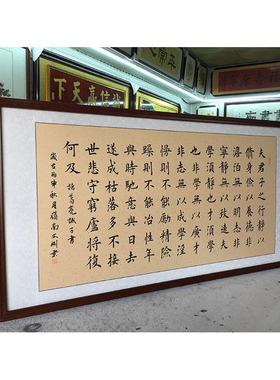 夫君子之行靜以
脩身儉以養德非
澹泊無以明志非
寧靜無以致遠夫
學須靜也才須學
也非學無以廣才
非志無以成學淫
慢則不能勵精險
躁則不能冶性年
與時馳意與日去
遂成枯落多不接
世悲守窮廬將復
何及 諸葛亮誡子書
歲在丙申秋月嶺南文州書